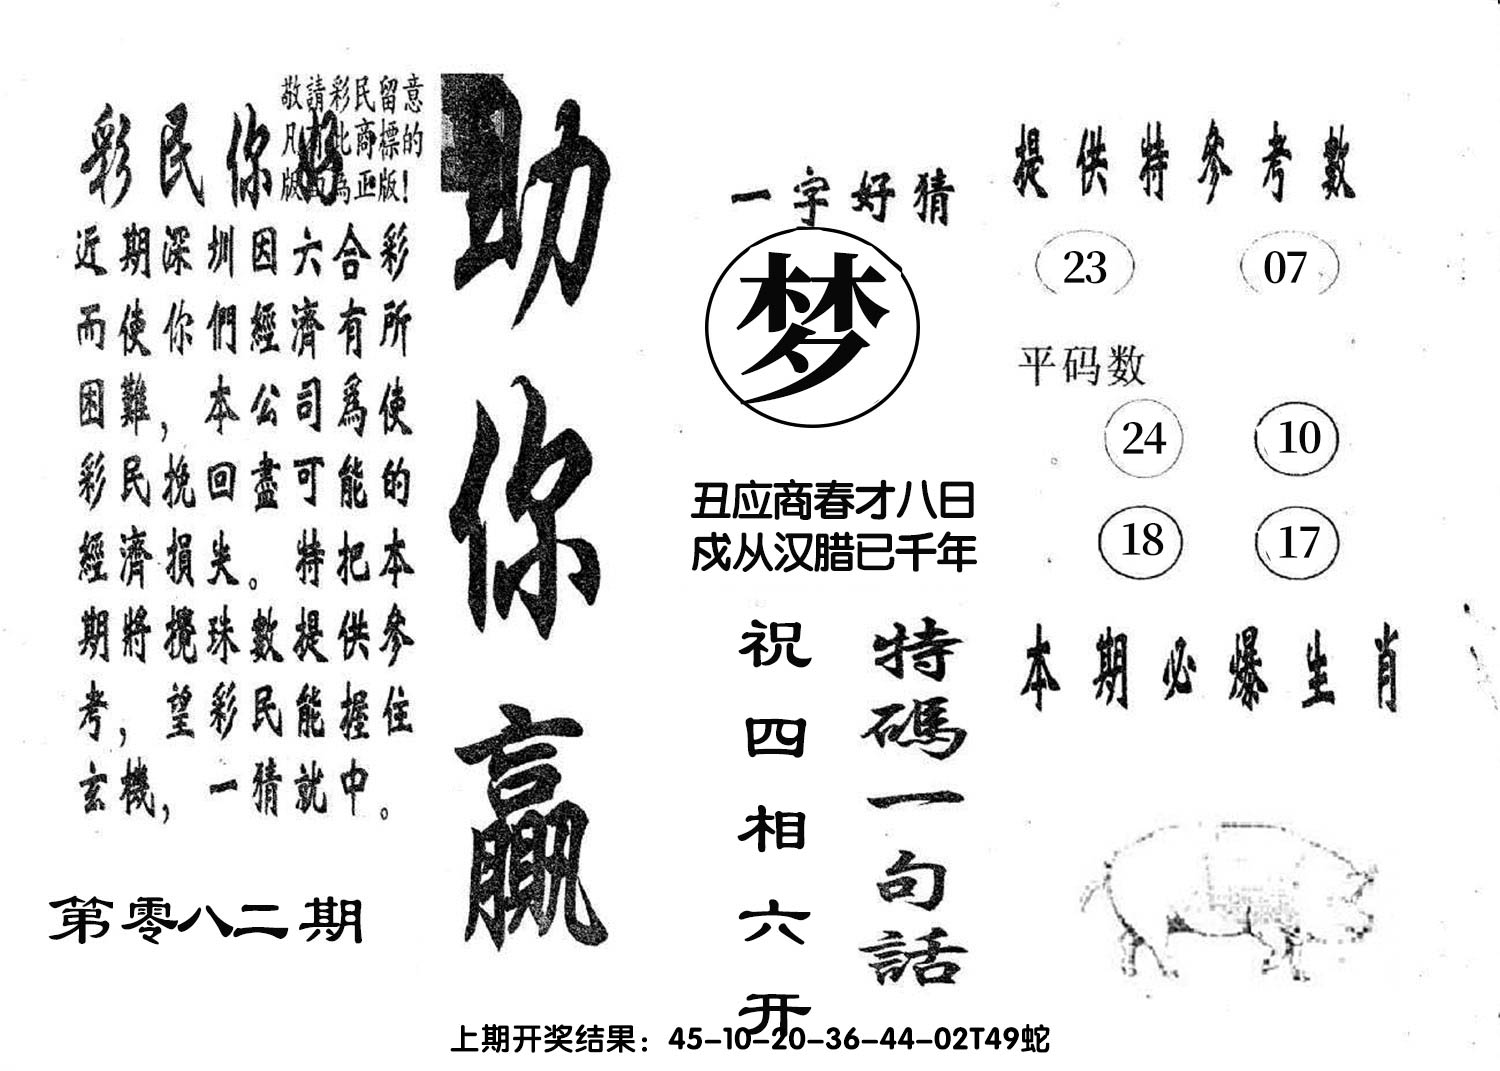 敬請彩民留意
凡有此商標的
版面為正版!
彩民你好
近期深圳因六合彩
而使你們經濟有所
困難，本公司爲使
彩民挽回盡可能的
經濟損失。特把本
期將攪珠數提供參
考，望彩民能握住
玄機，一猜就中。
第零八二期
助你贏
一字好猜
梦
丑应商春才八日
戍从汉腊已千年
特碼一句話
祝四相六开
提供特參考數
23 07
平码数
24 10
18 17
本期必爆生肖
上期开奖结果：45-10-20-36-44-02T49蛇